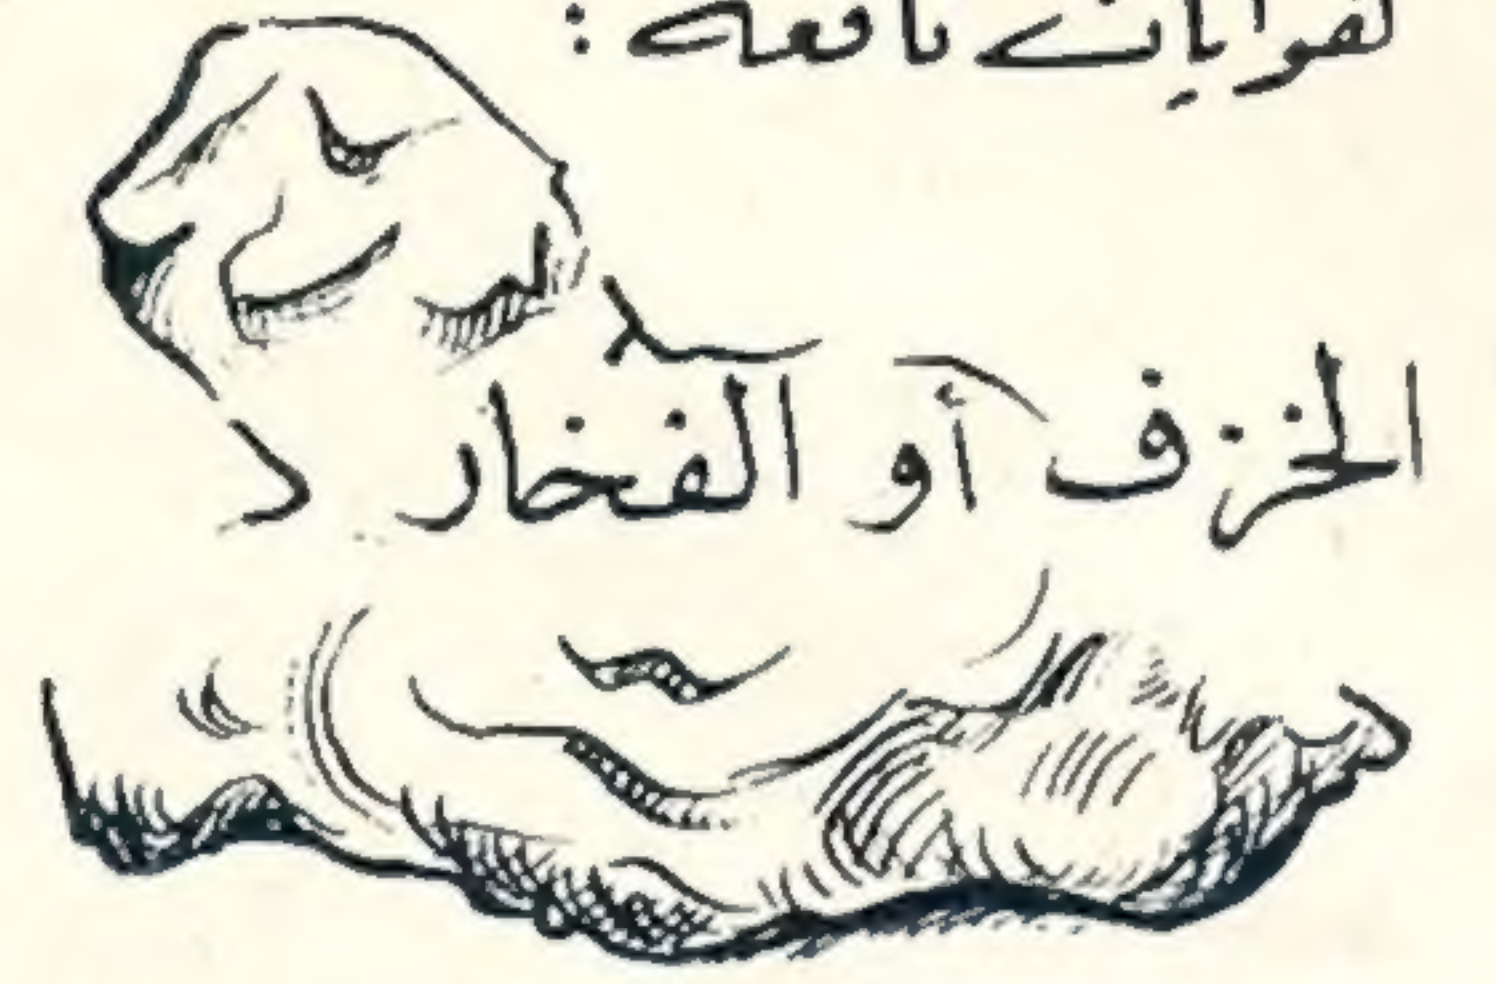 لقرايات نافعة :
الخزف أو الفخار د